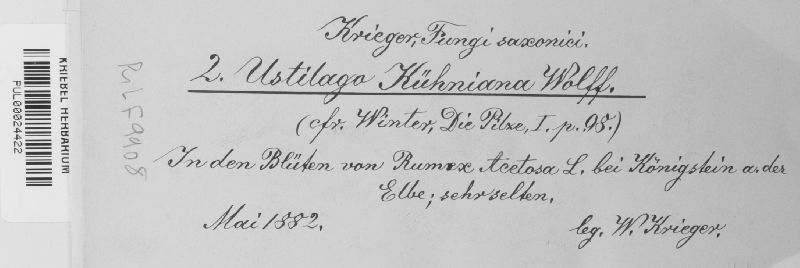 Krieger, Fungi saxonici.
2. Ustilago Kühniana Wolff.
(cfr. Winter, Die Pilze, I. p. 98.)
In den Blüten von Rumex Acetosa L. bei Königstein a. der
Elbe; sehr selten.
Mai 1882. leg. W. Krieger.
KRIEBEL HERBARIUM
PUL00024422
PUL F9908